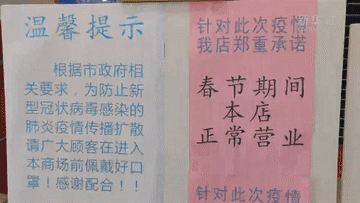 温馨提示
根据市政府相
关要求，为防止新
型冠状病毒感染的
肺炎疫情传播扩散
请广大顾客在进入
本商场前佩戴好口
罩！感谢配合！！
针对此次疫情
我店郑重承诺
春节期间
本店
正常营业
针对此次疫情